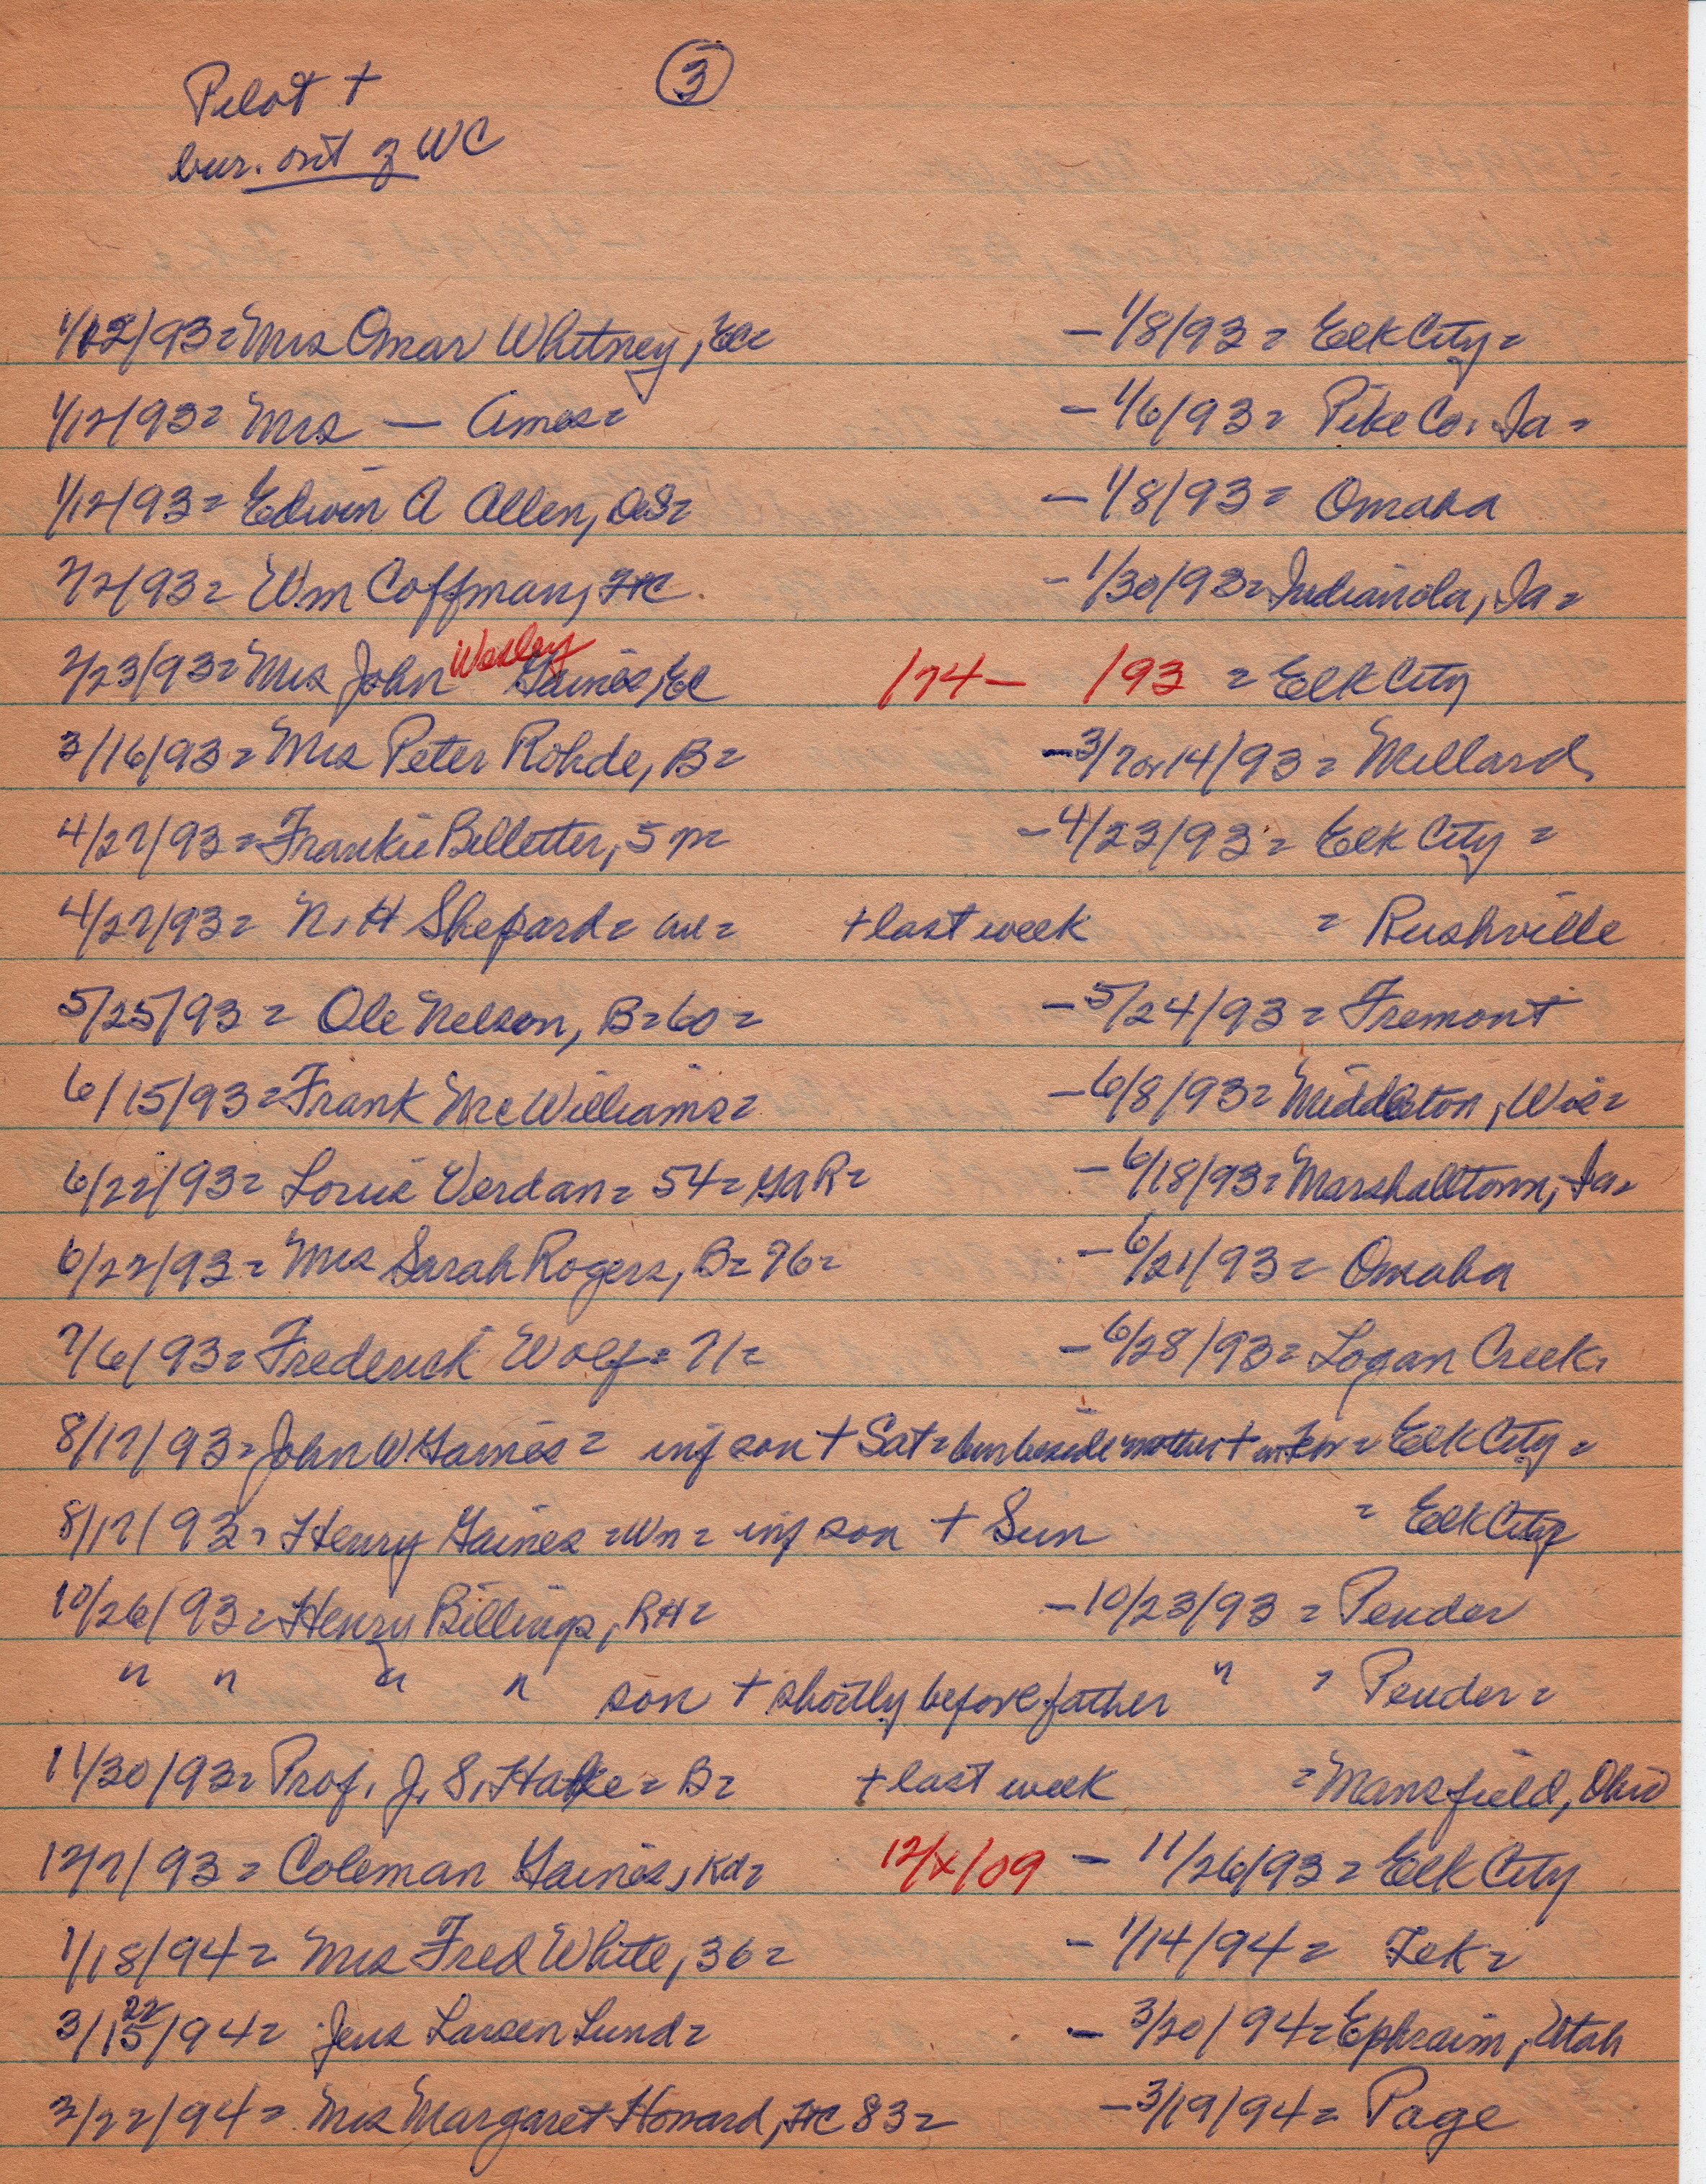 Pilot + ③
bur. out of WC
1/12/93= Mrs Omar Whitney, EC= – 1/8/93= Elk City=
1/12/93= Mrs — Ames= – 1/6/93= Pike Co. Ia=
1/12/93= Edwin A Allen, DeS= – 1/8/93= Omaha
2/2/93= Wm Coffman, FtC. – 1/30/93= Indianola, Ia=
2/23/93= Mrs John Wesley Gaines, EC 1/74– /93 = Elk City
3/16/93= Mrs Peter Rohde, B= – 3/7or14/93= Millard
4/27/93= Frankie Billetter, 5m= – 4/23/93= Elk City=
4/27/93= N.H Shepard= + last week = Rushville
5/25/93= Ole Nelson, B=60= – 5/24/93= Fremont
6/15/93= Frank McWilliams= – 6/8/93= Middleton, Wis=
6/22/93= Louis Verdan= 54= GAR= – 6/18/93= Marshalltown, Ia=
6/22/93= Mrs Sarah Rogers, B= 76= – 6/21/93= Omaha
7/6/93= Frederick Wolf= 71= – 6/28/93= Logan Creek.
8/17/93= John W. Gaines= inf son + Sat= bur beside mother + = Elk City=
8/17/93= Henry Gaines =Wn= inf son + Sun = Elk City
10/26/93= Henry Billings, RH= – 10/23/93 = Pender
" " " " son + shortly before father " = Pender=
11/30/93= Prof. J. S. = B= + last week = Mansfield, Ohio
12/7/93= Coleman Gaines, Kd= 12/x/09 – 11/26/93= Elk City
1/18/94= Mrs Fred White, 36= – 1/14/94= Tek=
3/15/94= 22 Jens Larsen Lund= – 3/20/94= Ephraim, Utah
3/22/94= Mrs Margaret Howard, FtC 83= – 3/19/94= Page